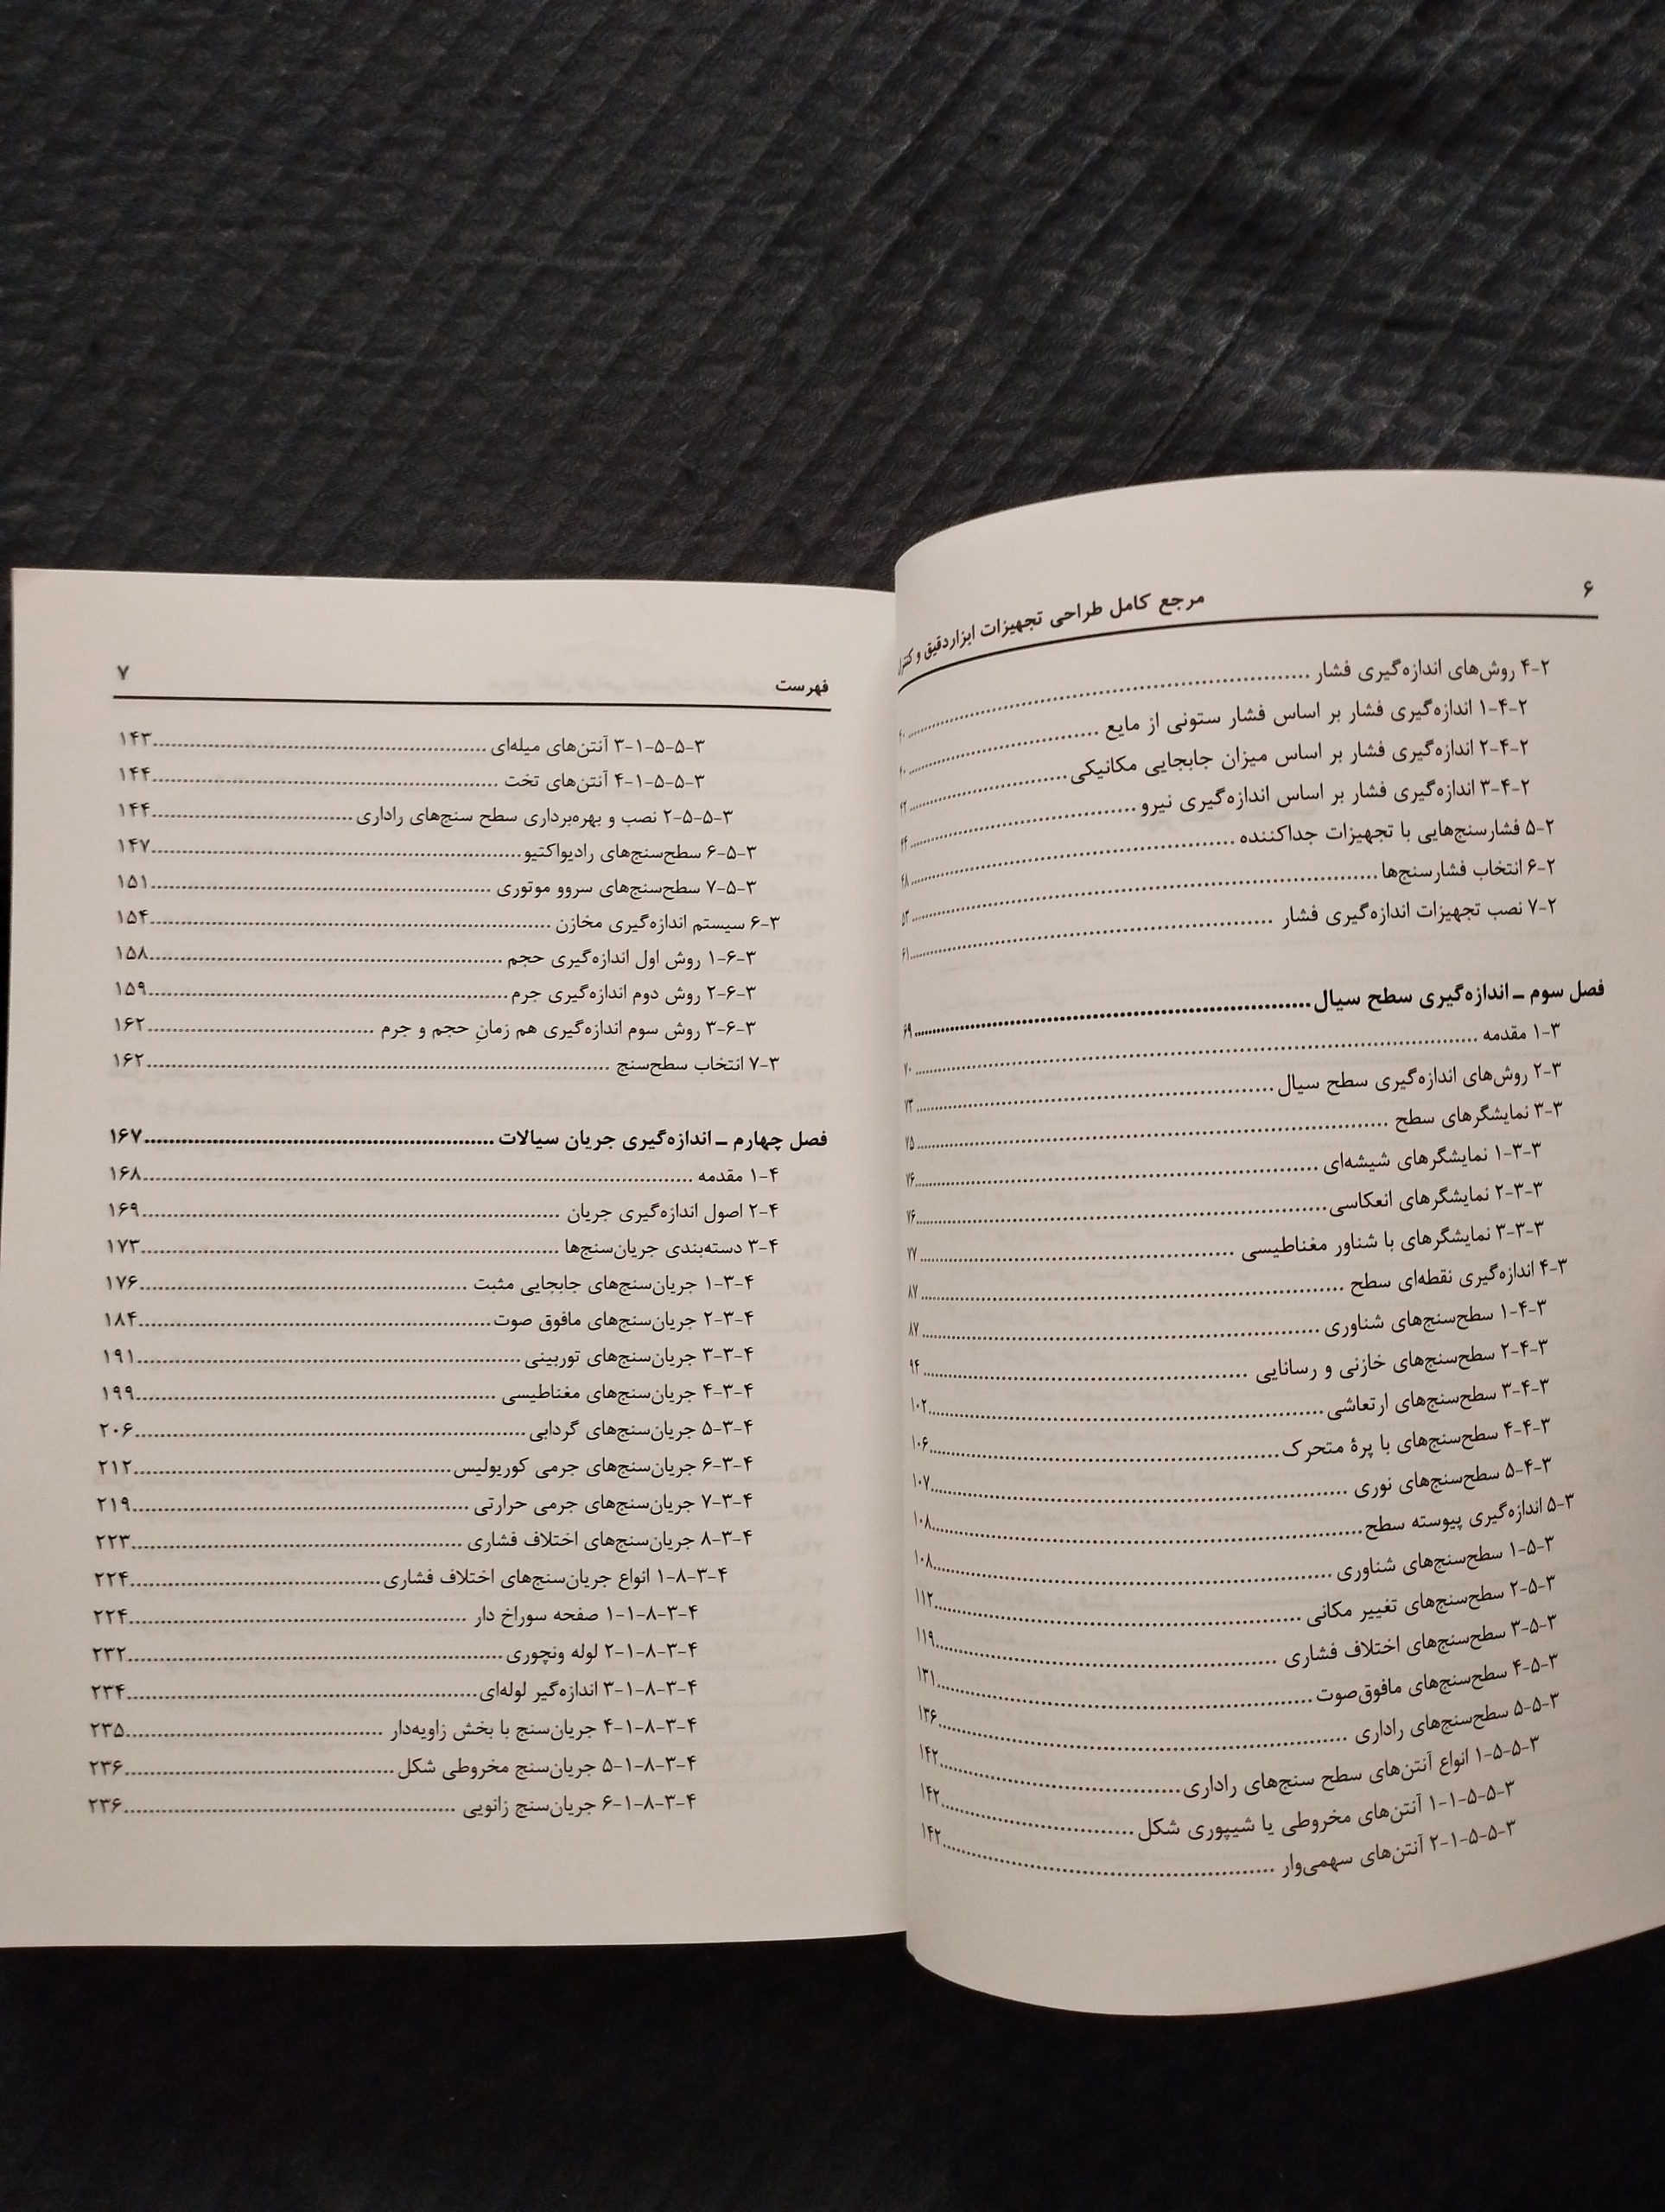 ۶
مرجع کامل طراحی تجهیزات ابزاردقیق و کنترل
۴-۲ روش‌های اندازه‌گیری فشار ........ ۴۰
۱-۴-۲ اندازه‌گیری فشار بر اساس فشار ستونی از مایع ........ ۴۰
۲-۴-۲ اندازه‌گیری فشار بر اساس میزان جابجایی مکانیکی ........ ۴۲
۳-۴-۲ اندازه‌گیری فشار بر اساس اندازه‌گیری نیرو ........ ۴۴
۵-۲ فشارسنج‌هایی با تجهیزات جداکننده ........ ۴۸
۶-۲ انتخاب فشارسنج‌ها ........ ۵۳
۷-۲ نصب تجهیزات اندازه‌گیری فشار ........ ۶۱
فصل سوم ــ اندازه‌گیری سطح سیال ........ ۶۹
۱-۳ مقدمه ........ ۷۰
۲-۳ روش‌های اندازه‌گیری سطح سیال ........ ۷۳
۳-۳ نمایشگرهای سطح ........ ۷۵
۱-۳-۳ نمایشگرهای شیشه‌ای ........ ۷۶
۲-۳-۳ نمایشگرهای انعکاسی ........ ۷۶
۳-۳-۳ نمایشگرهای با شناور مغناطیسی ........ ۷۷
۴-۳ اندازه‌گیری نقطه‌ای سطح ........ ۸۷
۱-۴-۳ سطح‌سنج‌های شناوری ........ ۸۷
۲-۴-۳ سطح‌سنج‌های خازنی و رسانایی ........ ۹۴
۳-۴-۳ سطح‌سنج‌های ارتعاشی ........ ۱۰۲
۴-۴-۳ سطح‌سنج‌های با پرۀ متحرک ........ ۱۰۶
۵-۴-۳ سطح‌سنج‌های نوری ........ ۱۰۷
۵-۳ اندازه‌گیری پیوسته سطح ........ ۱۰۸
۱-۵-۳ سطح‌سنج‌های شناوری ........ ۱۰۸
۲-۵-۳ سطح‌سنج‌های تغییر مکانی ........ ۱۱۲
۳-۵-۳ سطح‌سنج‌های اختلاف فشاری ........ ۱۱۹
۴-۵-۳ سطح‌سنج‌های مافوق‌صوت ........ ۱۳۱
۵-۵-۳ سطح‌سنج‌های راداری ........ ۱۳۶
۱-۵-۵-۳ انواع آنتن‌های سطح سنج‌های راداری ........ ۱۴۲
۱-۱-۵-۵-۳ آنتن‌های مخروطی یا شیپوری شکل ........ ۱۴۲
۲-۱-۵-۵-۳ آنتن‌های سهمی‌وار ........ ۱۴۲
فهرست
۷
۳-۱-۵-۵-۳ آنتن‌های میله‌ای ........ ۱۴۳
۴-۱-۵-۵-۳ آنتن‌های تخت ........ ۱۴۴
۲-۵-۵-۳ نصب و بهره‌برداری سطح سنج‌های راداری ........ ۱۴۴
۶-۵-۳ سطح‌سنج‌های رادیواکتیو ........ ۱۴۷
۷-۵-۳ سطح‌سنج‌های سروو موتوری ........ ۱۵۱
۶-۳ سیستم اندازه‌گیری مخازن ........ ۱۵۴
۱-۶-۳ روش اول اندازه‌گیری حجم ........ ۱۵۸
۲-۶-۳ روش دوم اندازه‌گیری جرم ........ ۱۵۹
۳-۶-۳ روش سوم اندازه‌گیری هم زمانِ حجم و جرم ........ ۱۶۲
۷-۳ انتخاب سطح‌سنج ........ ۱۶۲
فصل چهارم ــ اندازه‌گیری جریان سیالات ........ ۱۶۷
۱-۴ مقدمه ........ ۱۶۸
۲-۴ اصول اندازه‌گیری جریان ........ ۱۶۹
۳-۴ دسته‌بندی جریان‌سنج‌ها ........ ۱۷۳
۱-۳-۴ جریان‌سنج‌های جابجایی مثبت ........ ۱۷۶
۲-۳-۴ جریان‌سنج‌های مافوق صوت ........ ۱۸۴
۳-۳-۴ جریان‌سنج‌های توربینی ........ ۱۹۱
۴-۳-۴ جریان‌سنج‌های مغناطیسی ........ ۱۹۹
۵-۳-۴ جریان‌سنج‌های گردابی ........ ۲۰۶
۶-۳-۴ جریان‌سنج‌های جرمی کوریولیس ........ ۲۱۲
۷-۳-۴ جریان‌سنج‌های جرمی حرارتی ........ ۲۱۹
۸-۳-۴ جریان‌سنج‌های اختلاف فشاری ........ ۲۲۳
۱-۸-۳-۴ انواع جریان‌سنج‌های اختلاف فشاری ........ ۲۲۴
۱-۱-۸-۳-۴ صفحه سوراخ دار ........ ۲۲۴
۲-۱-۸-۳-۴ لوله ونچوری ........ ۲۳۲
۳-۱-۸-۳-۴ اندازه‌گیر لوله‌ای ........ ۲۳۴
۴-۱-۸-۳-۴ جریان‌سنج با بخش زاویه‌دار ........ ۲۳۵
۵-۱-۸-۳-۴ جریان‌سنج مخروطی شکل ........ ۲۳۶
۶-۱-۸-۳-۴ جریان‌سنج زانویی ........ ۲۳۶